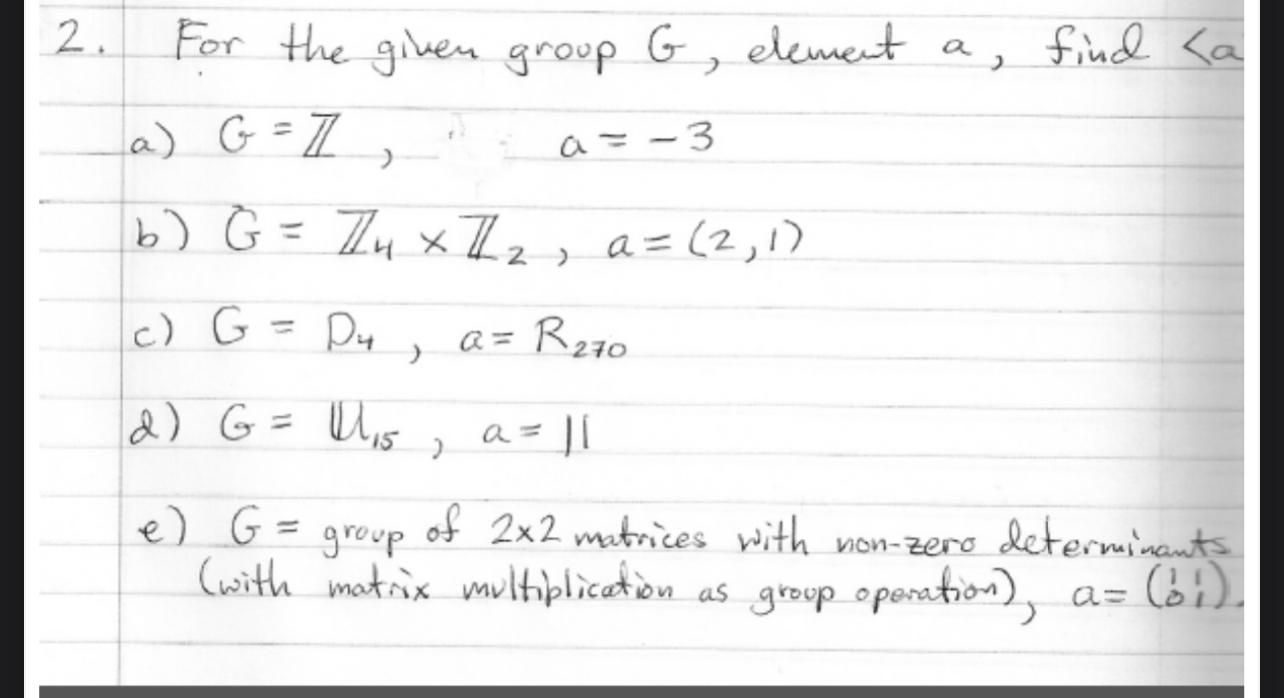 2. For the given group G, element a, find <a
a) G = ℤ, a = -3
b) G = ℤ₄ × ℤ₂, a = (2,1)
c) G = D₄, a = R₂₇₀
d) G = 𝕌₁₅, a = 11
e) G = group of 2x2 matrices with non-zero determinants
(with matrix multiplication as group operation), a = (1 1
0 1).